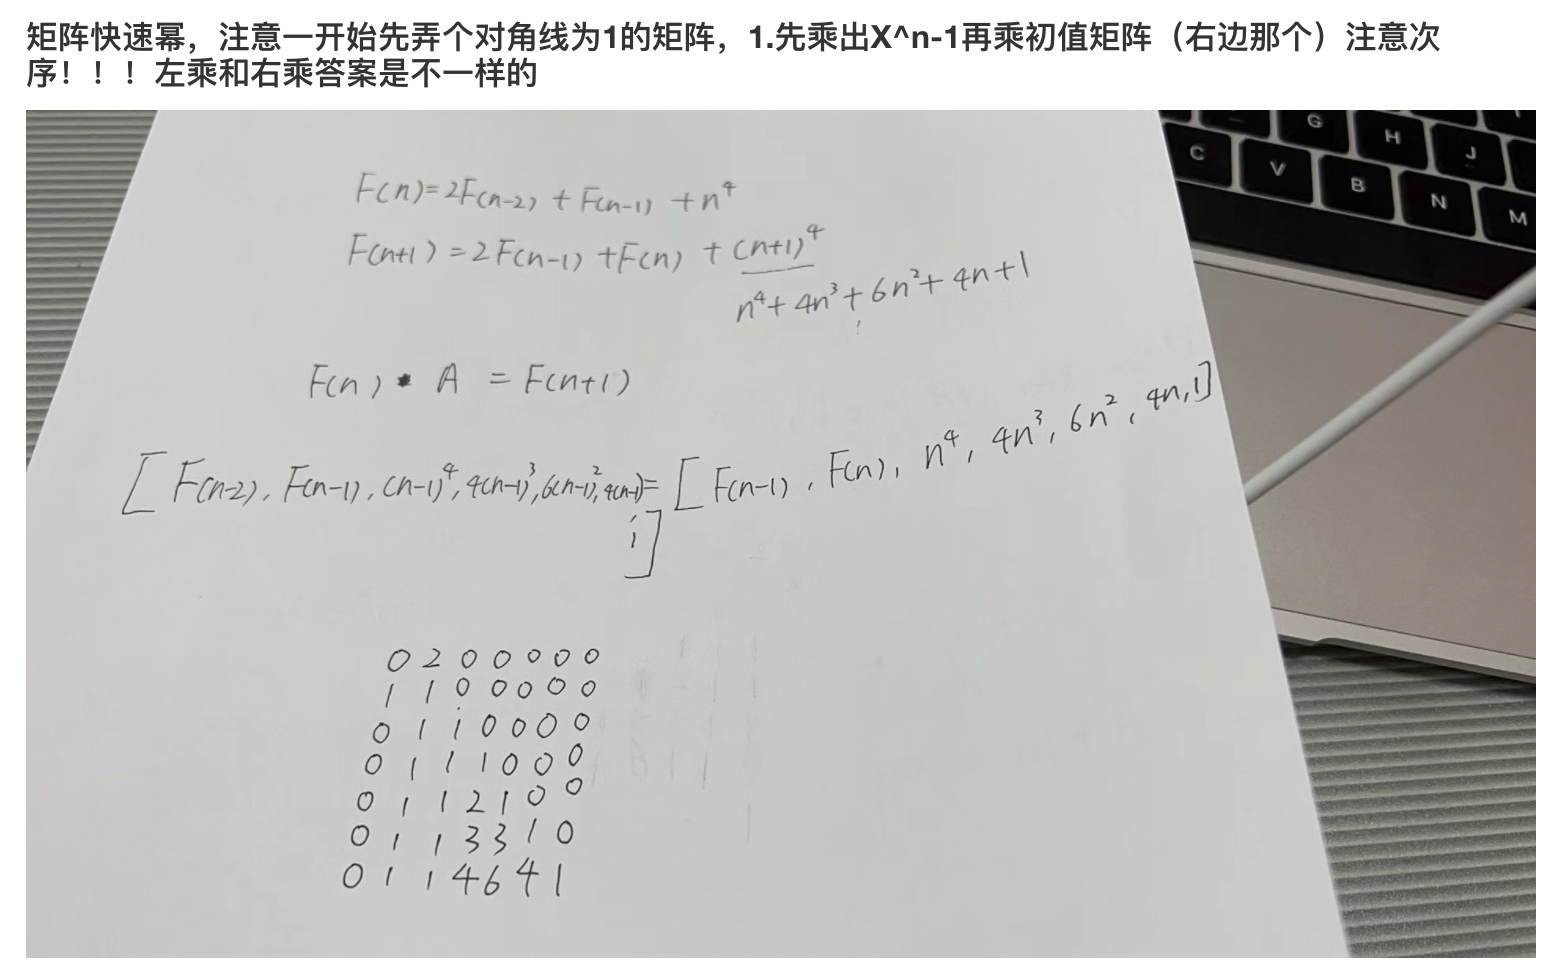 矩阵快速幂，注意一开始先弄个对角线为1的矩阵，1.先乘出X^n-1再乘初值矩阵（右边那个）注意次
序！！！左乘和右乘答案是不一样的
F(n)=2F(n-2)+F(n-1)+n⁴
F(n+1)=2F(n-1)+F(n)+(n+1)⁴
n⁴+4n³+6n²+4n+1
F(n)*A=F(n+1)
[F(n-2),F(n-1),(n-1)⁴,4(n-1)³,6(n-1)²,4(n-1)=[F(n-1),F(n),n⁴,4n³,6n²,4n,1]
1]
0 2 0 0 0 0 0
1 1 0 0 0 0 0
0 1 1 0 0 0 0
0 1 1 1 0 0 0
0 1 1 2 1 0 0
0 1 1 3 3 1 0
0 1 1 4 6 4 1
G
H
J
C
V
B
N
M